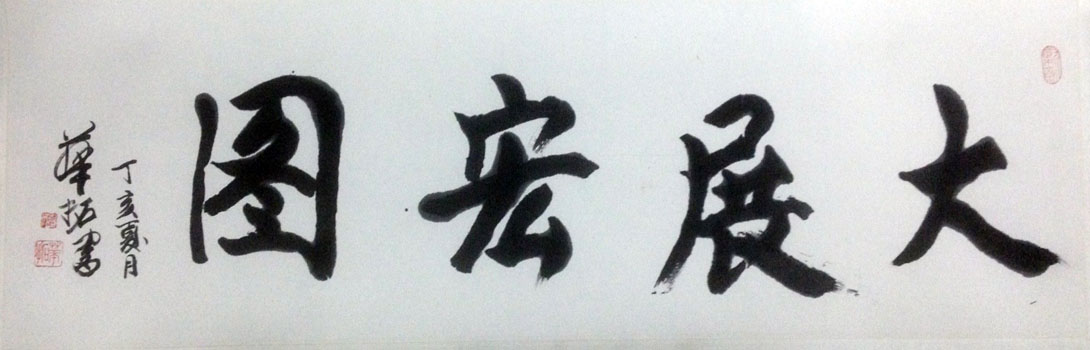 大展宏图
丁亥夏月
華拓書